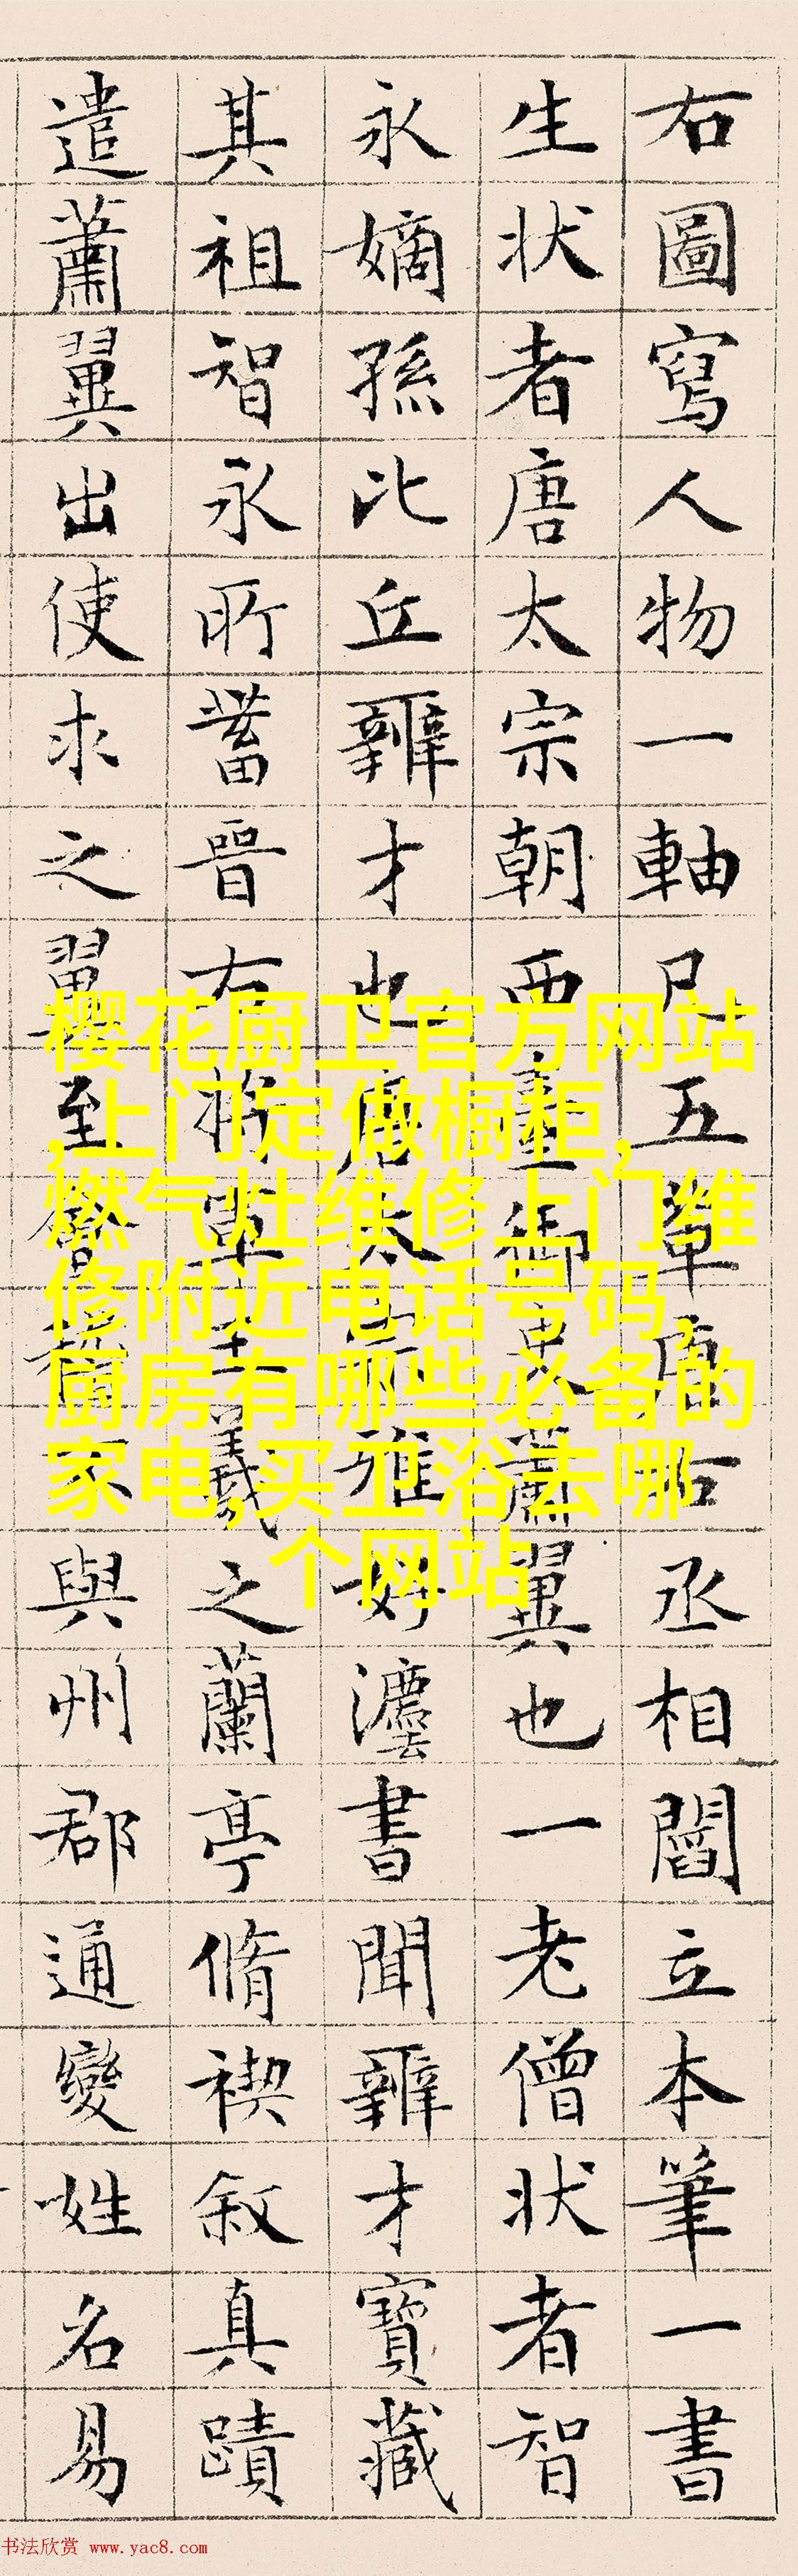 右圖寫人物一軸凡五輩唐右丞相閻立本筆一書
生狀者唐太宗朝西臺御史蕭翼也一老僧狀者智
永嫡孫比丘辨才也唐太宗雅好灋書聞辨才寶藏
其祖智永所蓄晉右將軍王羲之蘭亭脩禊敘真蹟
遣蕭翼出使求之翼至會稽不與州郡通變姓名易
樱花厨卫官方网站
,上门定做橱柜,
燃气灶维修上门维
修附近电话号码,
厨房有哪些必备的
家电,买卫浴去哪
个网站
书法欣赏 www.yac8.com